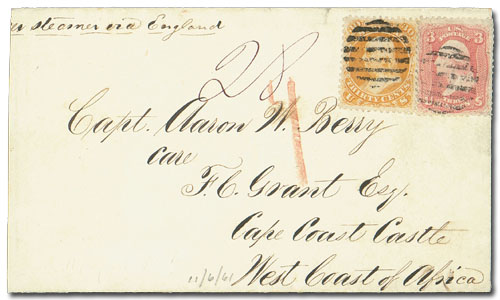 per steamer via England
28
U.S. POSTAGE
3 3
THIRTY CENTS
Capt. Aaron W. Berry
care
F. C. Grant Esq.
Cape Coast Castle
11/6/61
West Coast of Africa